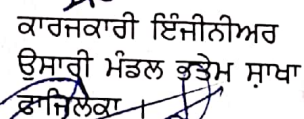 ਕਾਰਜਕਾਰੀ ਇੰਜੀਨੀਅਰ
ਉਸਾਰੀ ਮੰਡਲ ਭਤੇਮ ਸ਼ਾਖਾ
ਫਾਜਿਲਕਾ